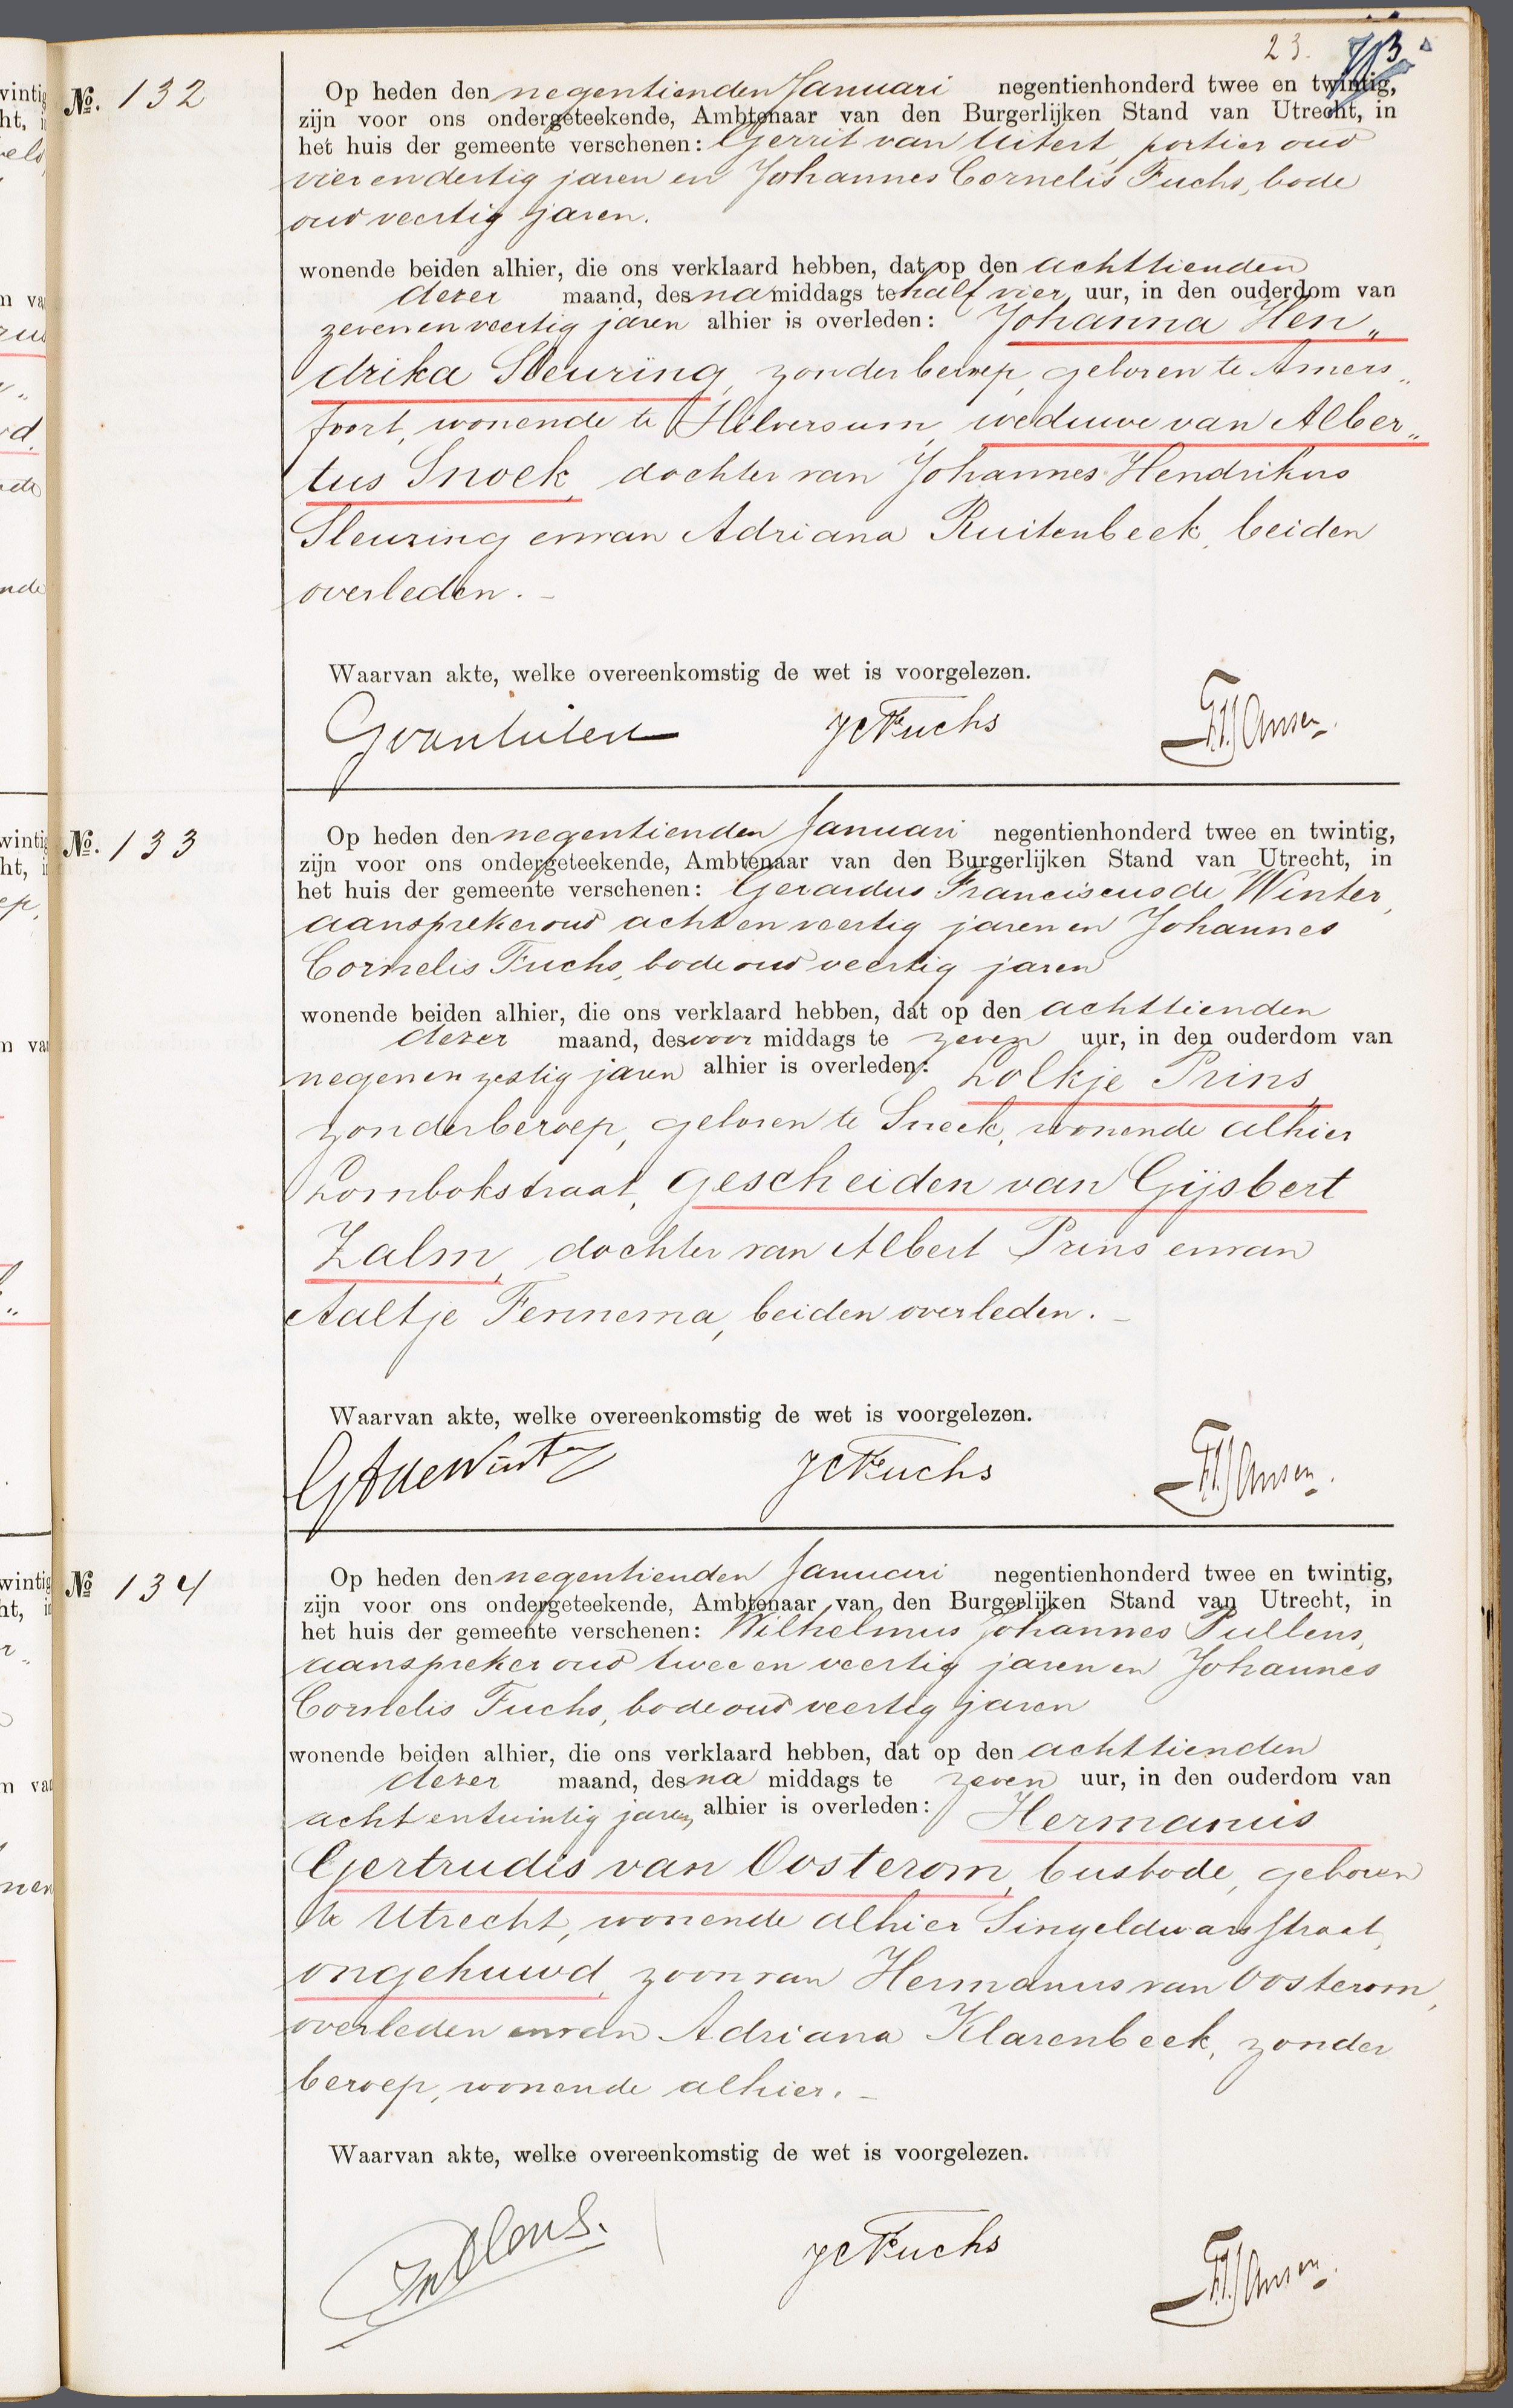 23.
No. 132
Op heden den negentienden Januari negentienhonderd twee en twintig,
zijn voor ons ondergeteekende, Ambtenaar van den Burgerlijken Stand van Utrecht, in
het huis der gemeente verschenen: Gerrit van Uitert, portier oud
vier en dertig jaren en Johannes Cornelis Fuchs, bode
oud veertig jaren.
wonende beiden alhier, die ons verklaard hebben, dat op den achttienden
dezer maand, des na middags te half vier uur, in den ouderdom van
zeven en veertig jaren alhier is overleden: Johanna Hen„
drika Sleuring, zonder beroep, geboren te Amers„
foort, wonende te Hilversum, weduwe van Alber„
tus Snoek, dochter van Johannes Hendrikus
Sleuring en van Adriana Ruitenbeek, beiden
overleden. -
Waarvan akte, welke overeenkomstig de wet is voorgelezen.
GvanUitert JCFuchs Jansen
No. 133
Op heden den negentienden Januari negentienhonderd twee en twintig,
zijn voor ons ondergeteekende, Ambtenaar van den Burgerlijken Stand van Utrecht, in
het huis der gemeente verschenen: Gerardus Franciscus de Winter,
aanspreker oud acht en veertig jaren en Johannes
Cornelis Fuchs, bode oud veertig jaren
wonende beiden alhier, die ons verklaard hebben, dat op den achttienden
dezer maand, des voor middags te zeven uur, in den ouderdom van
negen en zestig jaren alhier is overleden: Lolkje Prins,
zonder beroep, geboren te Sneek, wonende alhier
Lombokstraat, gescheiden van Gijsbert
Zalm, dochter van Albert Prins en van
Aaltje Fennema, beiden overleden. -
Waarvan akte, welke overeenkomstig de wet is voorgelezen.
JCFuchs Jansen
No 134
Op heden den negentienden Januari negentienhonderd twee en twintig,
zijn voor ons ondergeteekende, Ambtenaar van den Burgerlijken Stand van Utrecht, in
het huis der gemeente verschenen: Wilhelmus Johannes Pullens,
aanspreker oud twee en veertig jaren en Johannes
Cornelis Fuchs, bode oud veertig jaren
wonende beiden alhier, die ons verklaard hebben, dat op den achttienden
dezer maand, des na middags te zeven uur, in den ouderdom van
acht en twintig jaren alhier is overleden: Hermanus
Gertrudis van Oosterom, busbode, geboren
te Utrecht, wonende alhier Singeldwarsstraat,
ongehuwd, zoon van Hermanus van Oosterom,
overleden en van Adriana Klarenbeek, zonder
beroep, wonende alhier. -
Waarvan akte, welke overeenkomstig de wet is voorgelezen.
JCFuchs Jansen